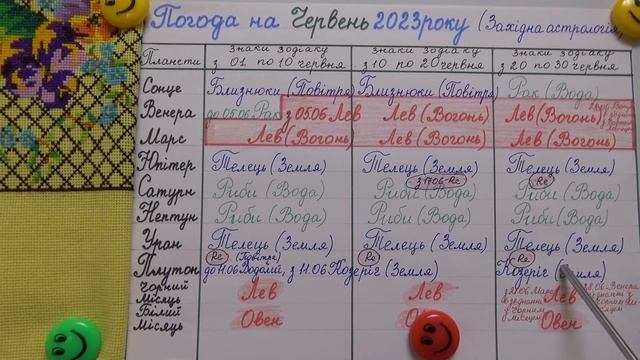 Погода на Червень 2023 року (Західна астрологія)
Планети
Знаки зодіаку з 01 по 10 червня
Знаки зодіаку з 10 по 20 червня
Знаки зодіаку з 20 по 30 червня
Сонце Близнюки (Повітря) Близнюки (Повітря) Рак (Вода)
Венера до 05.06 Рак з 05.06 Лев Лев (Вогонь) Лев (Вогонь)
Марс Лев (Вогонь) Лев (Вогонь) Лев (Вогонь)
Юпітер Телець (Земля) Телець (Земля) Телець (Земля)
з 17.06-Re Re
Сатурн Риби (Вода) Риби (Вода) Риби (Вода)
Нептун Риби (Вода) Риби (Вода) Риби (Вода)
Уран Телець (Земля) Телець (Земля) Телець (Земля)
Re (Повітря) Re Re
Плутон до 11.06 Водолій, з 11.06 Козеріг (Земля) Козеріг (Земля)
Чорний Місяць Лев Лев Лев
Білий Місяць Овен Овен Овен